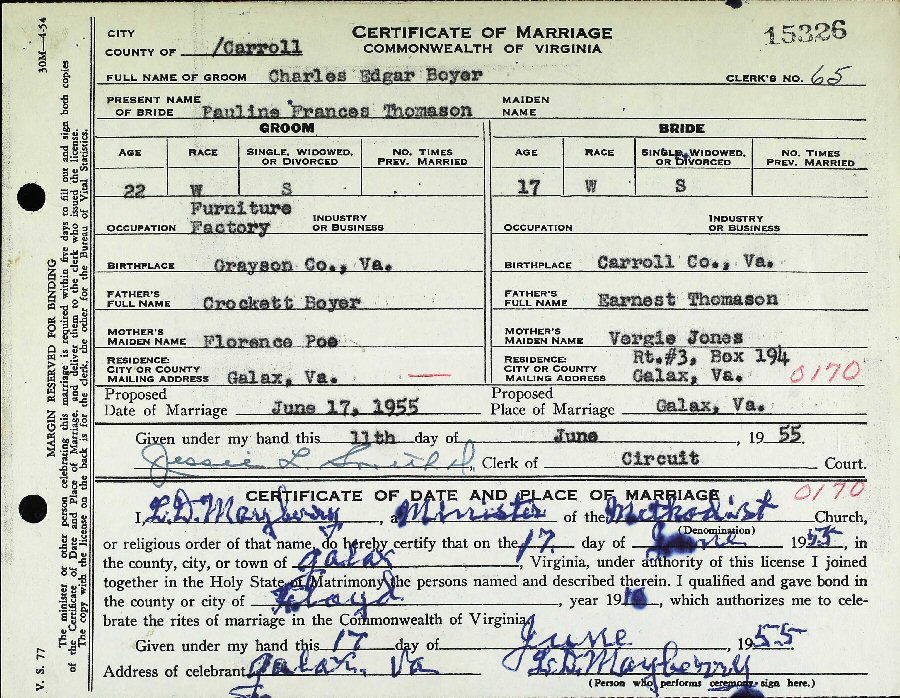 CITY
COUNTY OF /Carroll
CERTIFICATE OF MARRIAGE
COMMONWEALTH OF VIRGINIA
15326
FULL NAME OF GROOM Charles Edgar Boyer CLERK'S NO. 65
PRESENT NAME OF BRIDE Pauline Frances Thomason MAIDEN NAME
GROOM BRIDE
AGE RACE SINGLE, WIDOWED, OR DIVORCED NO. TIMES PREV. MARRIED AGE RACE SINGLE, WIDOWED, OR DIVORCED NO. TIMES PREV. MARRIED
22 W S 17 W S
OCCUPATION Furniture Factory INDUSTRY OR BUSINESS OCCUPATION INDUSTRY OR BUSINESS
BIRTHPLACE Grayson Co., Va. BIRTHPLACE Carroll Co., Va.
FATHER'S FULL NAME Crockett Boyer FATHER'S FULL NAME Earnest Thomason
MOTHER'S MAIDEN NAME Florence Poe MOTHER'S MAIDEN NAME Vergie Jones
RESIDENCE: CITY OR COUNTY MAILING ADDRESS Galax, Va. RESIDENCE: CITY OR COUNTY MAILING ADDRESS Rt.#3, Box 194 Galax, Va. 0170
Proposed Date of Marriage June 17, 1955 Proposed Place of Marriage Galax, Va.
Given under my hand this 11th day of June, 1955
Jessie L Smith, Clerk of Circuit Court.
CERTIFICATE OF DATE AND PLACE OF MARRIAGE 0170
I, L.D. Mayberry, a Minister of the Methodist Church,
(Denomination)
or religious order of that name, do hereby certify that on the 17. day of June 1955, in
the county, city, or town of Galax, Virginia, under authority of this license I joined
together in the Holy State of Matrimony the persons named and described therein. I qualified and gave bond in
the county or city of Floyd, year 19, which authorizes me to cele-
brate the rites of marriage in the Commonwealth of Virginia.
Given under my hand this 17 day of June, 1955
Address of celebrant Galax, Va L.D. Mayberry
(Person who performs ceremony sign here.)
30M—4-54
V. S. 77
MARGIN RESERVED FOR BINDING
The minister or other person celebrating this marriage is required within five days to fill out and sign both copies
of the Certificate of Date and Place of Marriage, and deliver them to the clerk who issued the license.
The copy with the license on the back is for the clerk, the other for the Bureau of Vital Statistics.